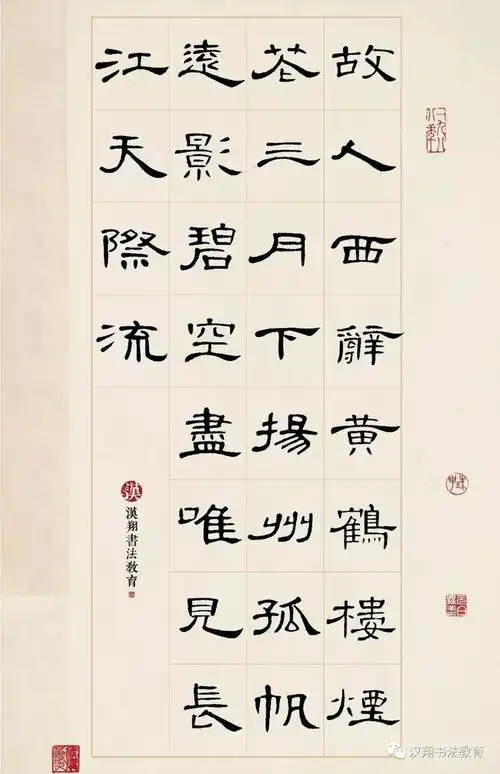 故人西辭黄鶴樓煙
花三月下揚州孤帆
遠影碧空盡唯見長
江天際流
漢翔書法教育
汉翔书法教育